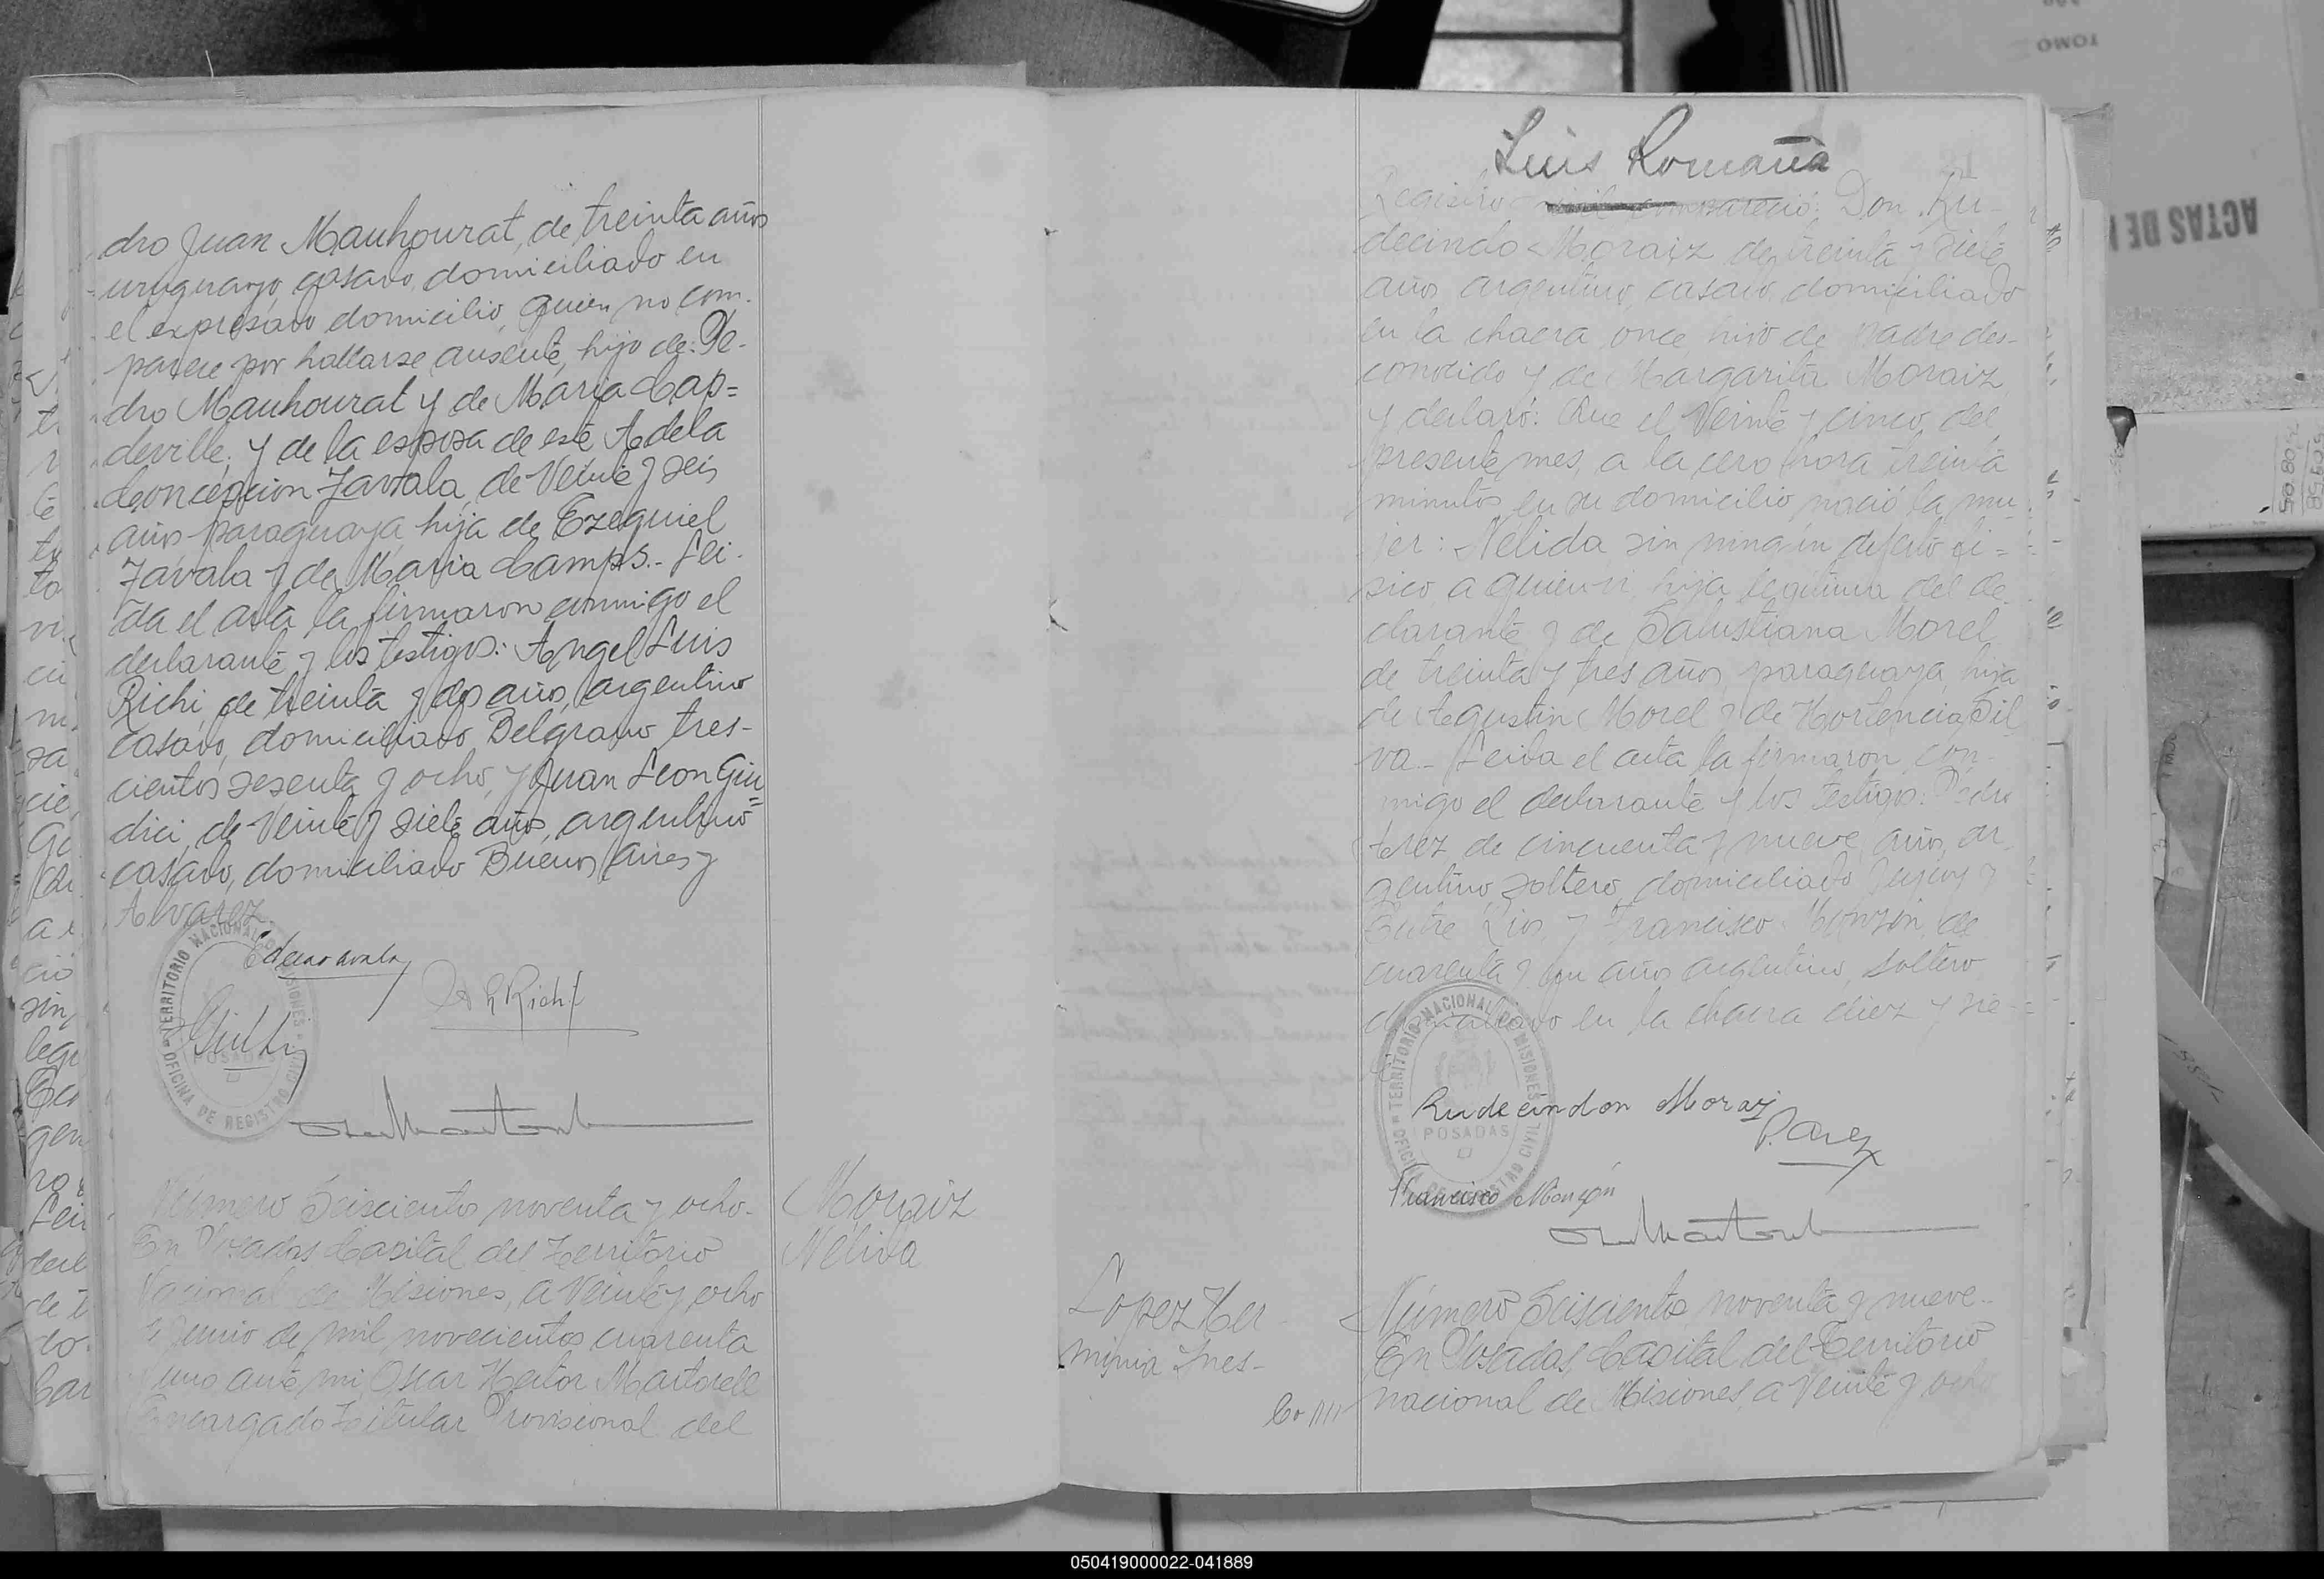 dro Juan Mauhourat, de treinta años
uruguayo, casado, domiciliado en
el expresado domicilio, quien no com-
parece por hallarse ausente, hijo de: Pe-
dro Mauhourat y de Maria Cap=
deville; y de la esposa de este Adela
Concepcion Zavala, de Veinte y seis
años paraguaya, hija de Ezequiel
Zavala y de Maria Camps.- Lei-
da el acta la firmaron conmigo el
declarante y los testigos: Angel Luis
Richi, de treinta y dos años, argentino
casado, domiciliado Belgrano tres-
cientos sesenta y ocho, y Juan Leon Giu
dici, de Veinte y siete años, argentino=
casado, domiciliado Buenos Aires y
Alvarez.
A L Richi
TERRITORIO NACIONAL DE MISIONES
POSADAS
OFICINA DE REGISTRO CIVIL
Número Seiscientos noventa y ocho-
En Posadas Capital del Territorio
Nacional de Misiones, a Veinte y ocho
de Junio de mil novecientos cuarenta
y uno ante mi, Oscar Hector Martorell
Encargado Titular Provisional del
Moraiz
Nélida
Luis Romaña
Registro civil compareció: Don Ru-
decindo Moraiz de treinta y siete
años argentino, casado, domiciliado
en la chacra once, hijo de padre des-
conocido y de Margarita Moraiz,
y declaró: Que el Veinte y cinco del
presente mes, a la cero hora treinta
minutos en su domicilio nació la mu
jer: Nélida sin ningún defecto fi=
sico, a quien vi, hija legitima del de
clarante y de Salustiana Morel,
de treinta y tres años, paraguaya, hija
de Agustin Morel y de Hortencia Sil
va.- Leida el acta la firmaron con-
migo el declarante y los testigos: Pedro
Perez de cincuenta y nueve años, ar
gentino soltero, domiciliado Jujuy y
Entre Rios, y Francisco Monzón, de
cuarenta y un años argentino, soltero
domiciliado en la chacra diez y sie-
te
TERRITORIO NACIONAL DE MISIONES
POSADAS
OFICINA DE REGISTRO CIVIL
Rudecindon Moraiz
Francisco Monzón
Lopez Her
minia Ines-
Número Seiscientos noventa y nueve-
En Posadas, Capital del Territorio
nacional de Misiones, a Veinte y ocho
TOMO
ACTAS DE
050419000022-041889